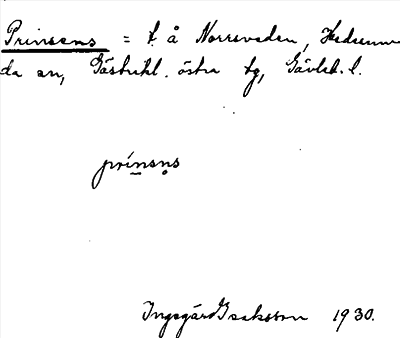 Prinsens = t. å Norrsveden, Hedesun-
da sn, Gästrikl. östra tg, Gävleb. l.
prinsns
Ingegärd Isaksson 1930.